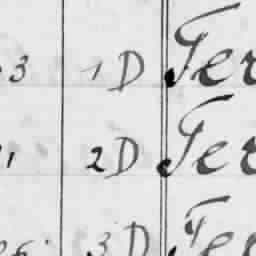 3 1D Fer
1 2D Fer
3D Fer